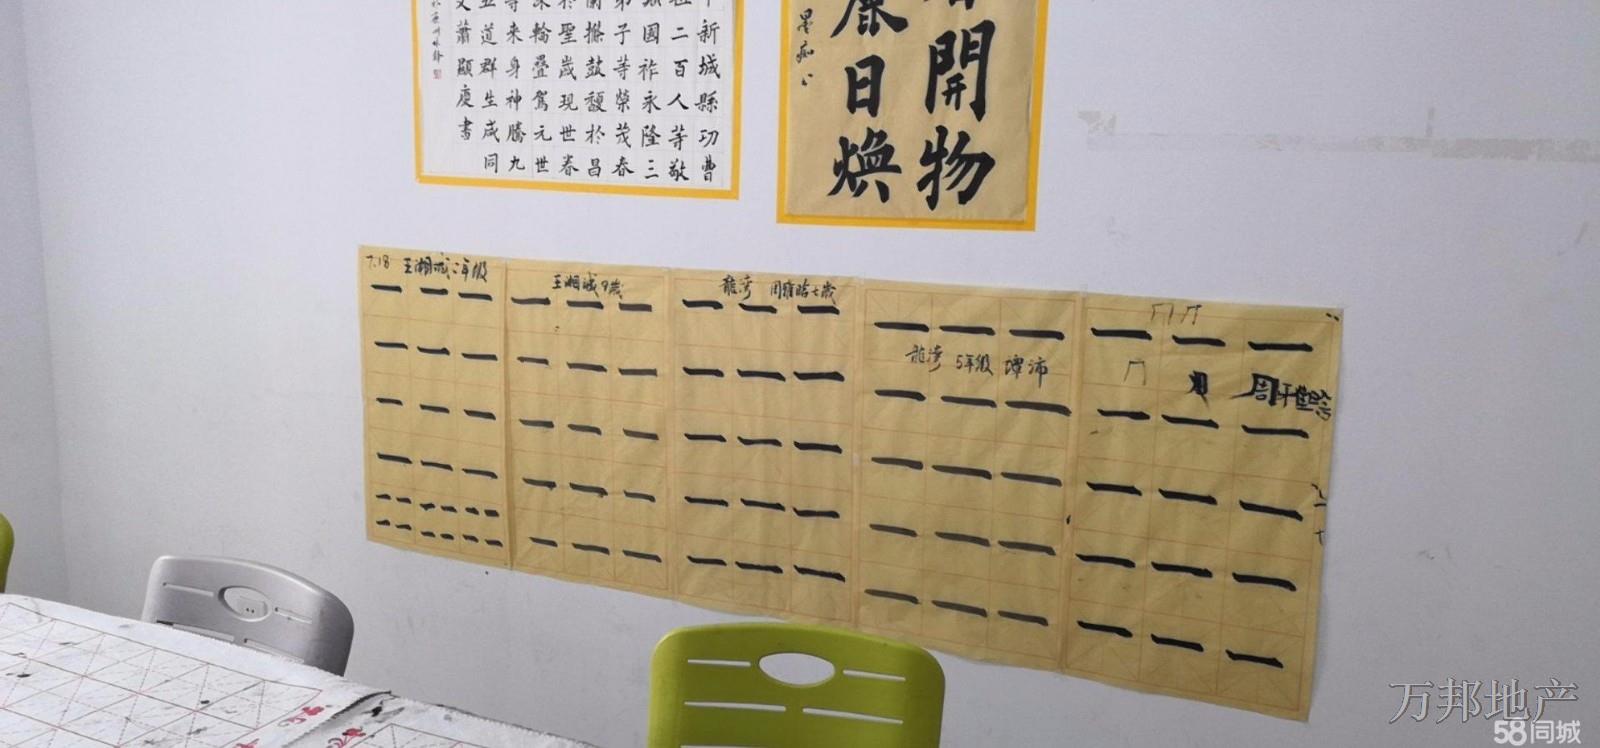 新城縣功曹
二百人等敬
國祚永隆三
弟子等榮茂春
蘭擬鼓馥於昌
於聖歲現世眷
輪疊駕元世
等来身神騰九
五道群生咸同
文蕭顯慶書
開物
康日煥
7.18 王湘诚二年级
王湘诚9歲
龍湾 周雅晗七歲
龍湾 5年级 谭沛
周雅晗
万邦地产
58同城